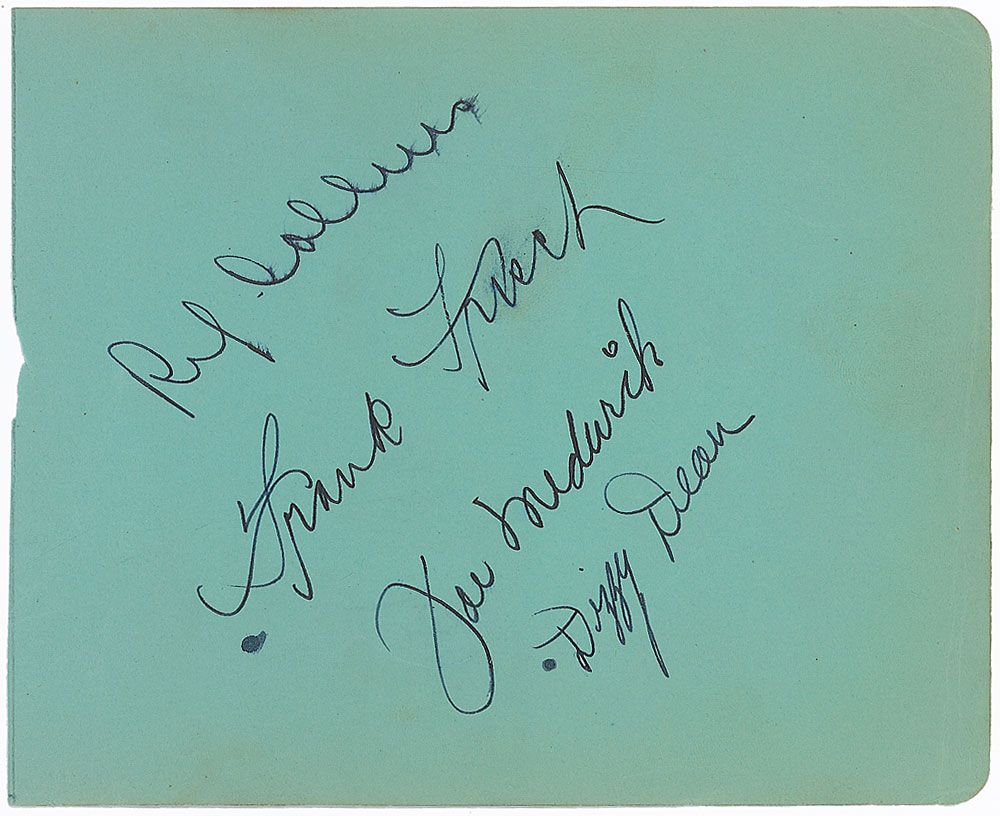 Rip Collins
Frank Frisch
Joe Medwick
Dizzy Dean